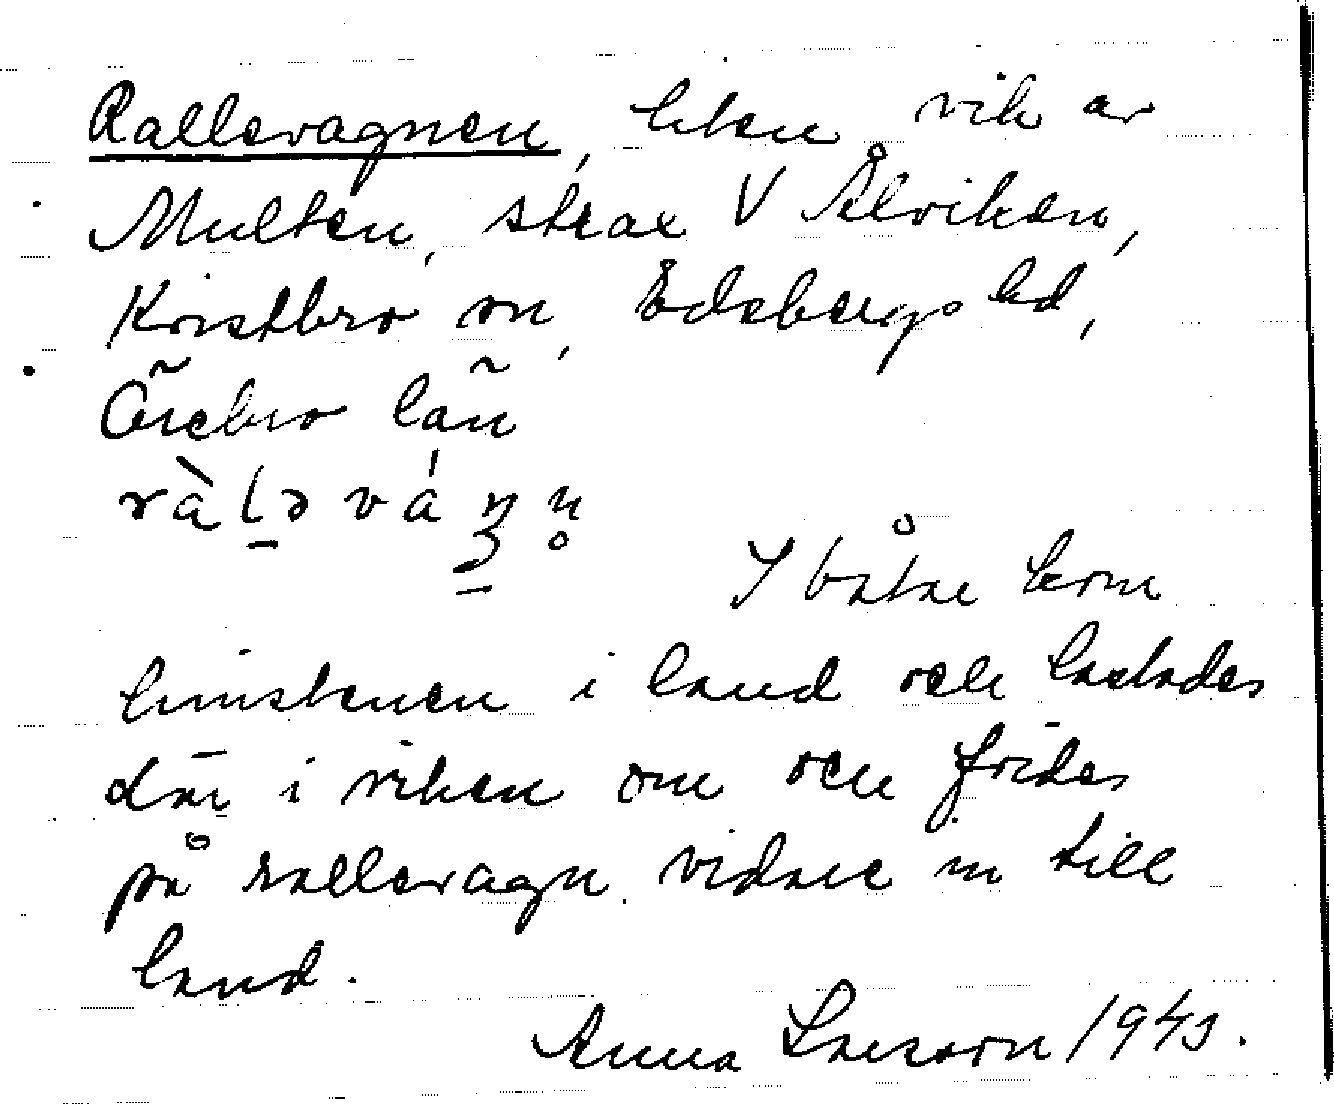 Rallevagnen, liten vik av
Multen, strax V Ålviken,
Kvistbro sn, Edsbergs hd,
Örebro län
I båtar kom
limstenen i land och lastades
där i viken om och fördes
på rallevagn vidare in till
land.
Anna Larsson 1943.